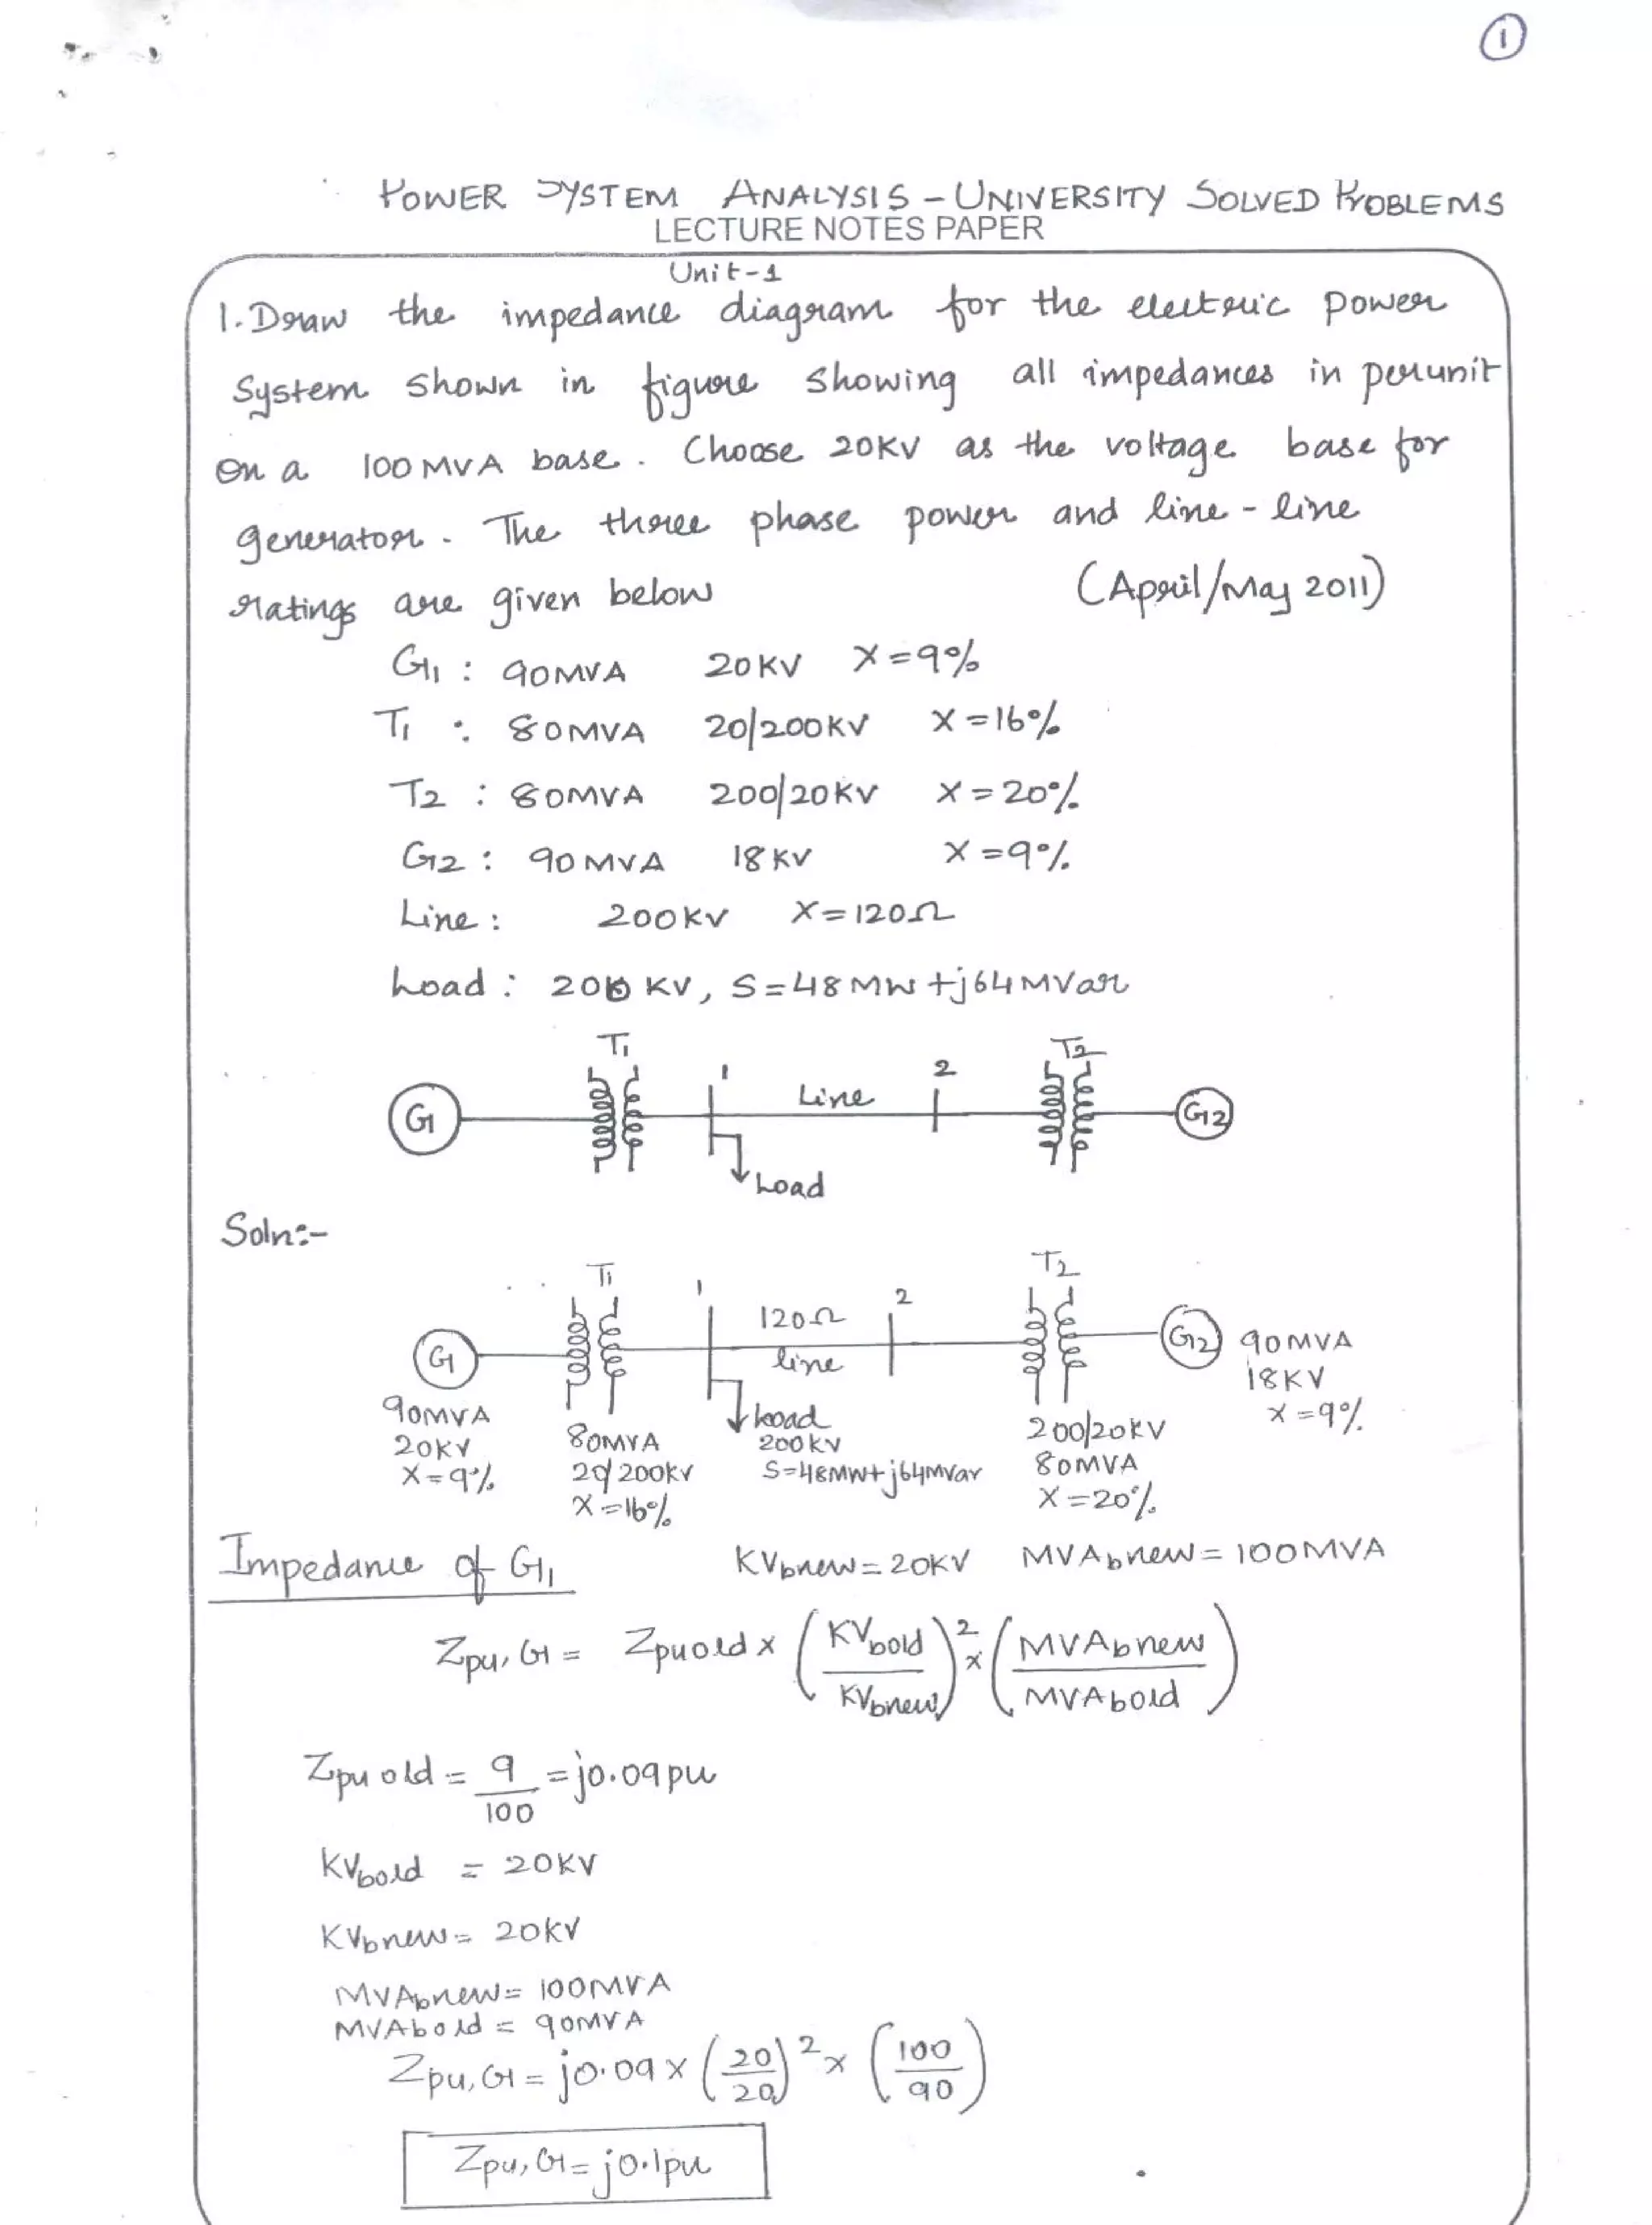 1
POWER SYSTEM ANALYSIS - UNIVERSITY SOLVED PROBLEMS
LECTURE NOTES PAPER
Unit-1
1. Draw the impedance diagram for the electric power
System shown in figure showing all impedances in perunit
on a 100 MVA base. Choose 20KV as the voltage base for
generator. The three phase power and line-line
ratings are given below (April/May 2011)
G1 : 90MVA 20KV X=9%
T1 : 80MVA 20/200KV X=16%
T2 : 80MVA 200/20KV X=20%
G2 : 90MVA 18KV X=9%
Line : 200KV X=120Ω
Load : 200 KV, S=48MW+j64MVar
T1 1 Line 2 T2
G1 G2
Load
Soln:-
T1 1 120Ω 2 T2
G1 line G2 90MVA
18KV
X=9%
90MVA 80MVA Load 200/20KV
20KV 20/200KV 200KV 80MVA
X=9% X=16% S=48MW+j64MVar X=20%
Impedance of G1 KVbnew=20KV MVAbnew=100MVA
Zpu,G1 = Zpuold x (KVbold/KVbnew)² x (MVAbnew/MVAbold)
Zpu old = 9/100 = j0.09pu
KVbold = 20KV
KVbnew = 20KV
MVAbnew = 100MVA
MVAbold = 90MVA
Zpu,G1 = j0.09 x (20/20)² x (100/90)
Zpu,G1 = j0.1pu